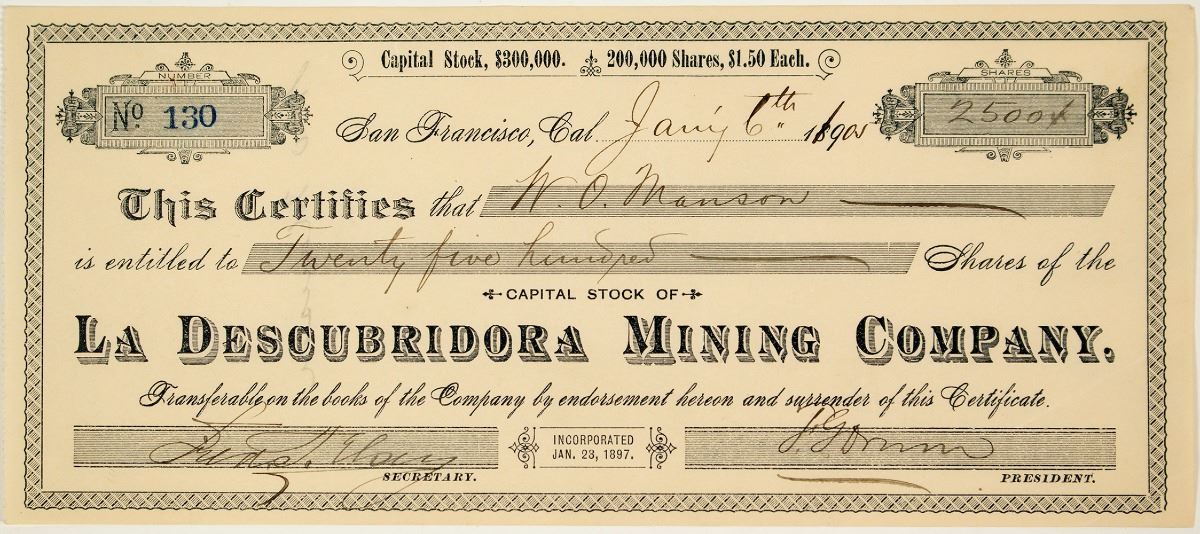 Capital Stock, $300,000. 200,000 Shares, $1.50 Each.
NUMBER
No. 130
SHARES
2500
San Francisco, Cal. Jan'y 6th
This Certifies that W. O. Manson
is entitled to Twenty five hundred Shares of the
CAPITAL STOCK OF
LA DESCUBRIDORA MINING COMPANY.
Transferable on the books of the Company by endorsement hereon and surrender of this Certificate.
INCORPORATED
JAN. 23, 1897.
SECRETARY.
PRESIDENT.